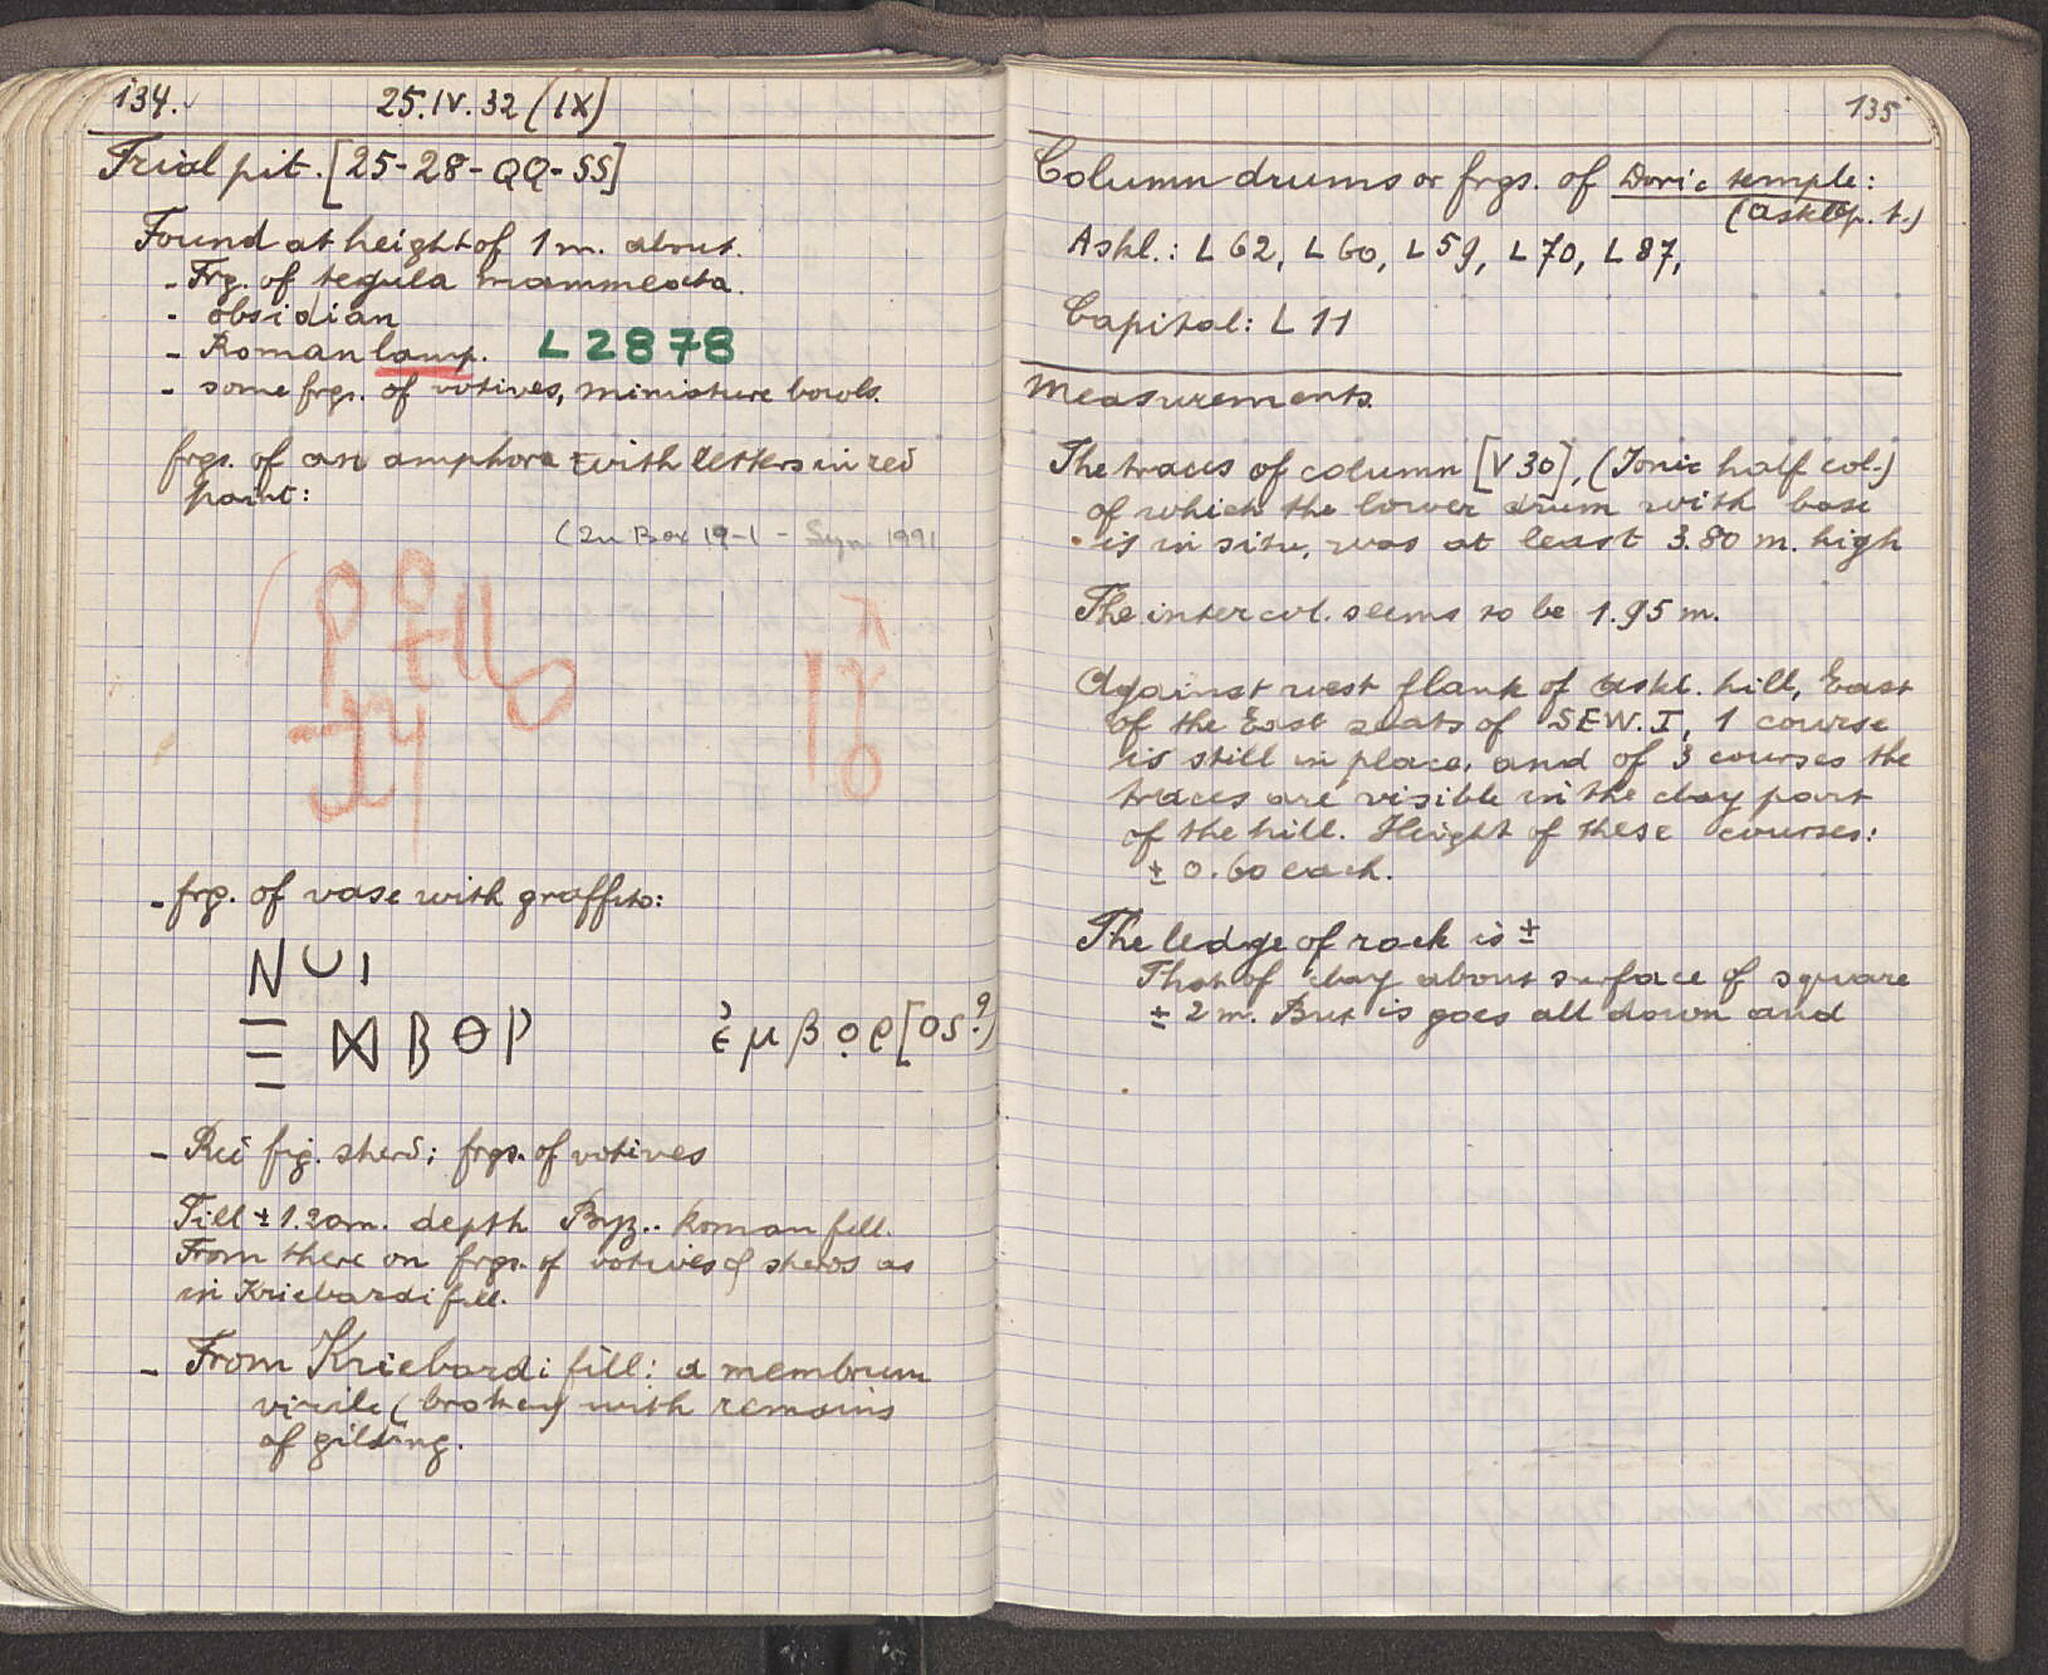 134.
25.IV.32 (IX)
Trial pit. [25-28-QQ-SS]
Found at height of 1 m. about.
- Frg. of tegula mammeata.
- obsidian
- Roman lamp. L 2878
- some frgs. of votives, miniature bowls.
frgs. of an amphora with letters in red
paint:
(In Box 19-1 - 1991
- frg. of vase with graffito:
N ∪ I
Ξ ⋈ B Θ P ἐμβọρ[os?]
- Red fig. sherd; frgs. of votives
Till ± 1.20m. depth Byz.. Roman fill.
From there on frgs. of votives & sherds as
in Kriebardi fill.
- From Kriebardi fill: a membrum
virile (broken) with remains
of gilding.
135
Column drums or frgs. of Doric temple:
(asklep. t.)
Askl.: L 62, L 60, L 59, L 70, L 87,
Capital: L 11
Measurements.
The traces of column [V 30], (Ionic half col.)
of which the lower drum with base
is in situ, was at least 3.80 m. high
The intercol. seems to be 1.95 m.
Against west flank of askl. hill, East
of the East seats of SEW. I, 1 course
is still in place, and of 3 courses the
traces are visible in the clay part
of the hill. Height of these courses:
± 0.60 each.
The ledge of rock is ±
That of clay about surface of square
± 2 m. But is goes all down and